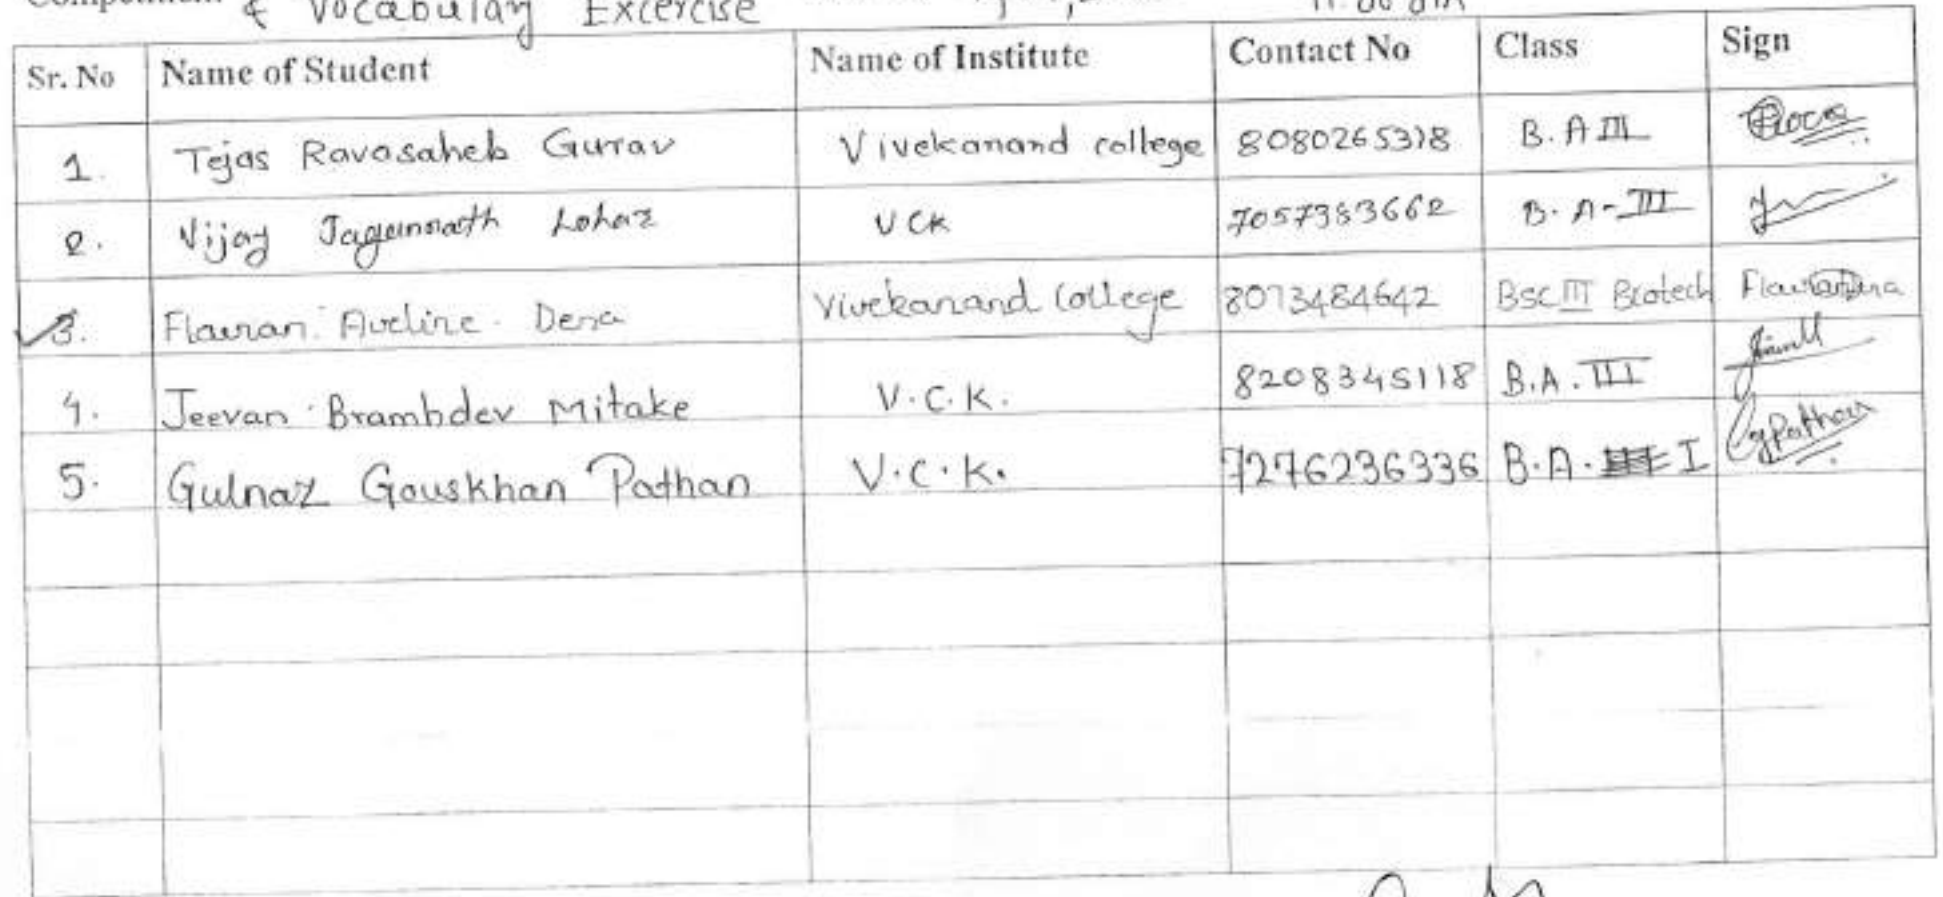 & Vocabulary Excercise
Sr. No Name of Student Name of Institute Contact No Class Sign
1. Tejas Ravasaheb Gurav Vivekanand college 8080265318 B.A III
2. Vijay Jagannath Lohar VCK 7057383662 B.A-III
3. Flauran Aveline Dena Vivekanand College 8073484642 BSc III Biotech
4. Jeevan Brambdev Mitake V.C.K. 8208345118 B.A. III
5. Gulnaz Gouskhan Pathan V.C.K. 7276236336 B.A. I gpathan